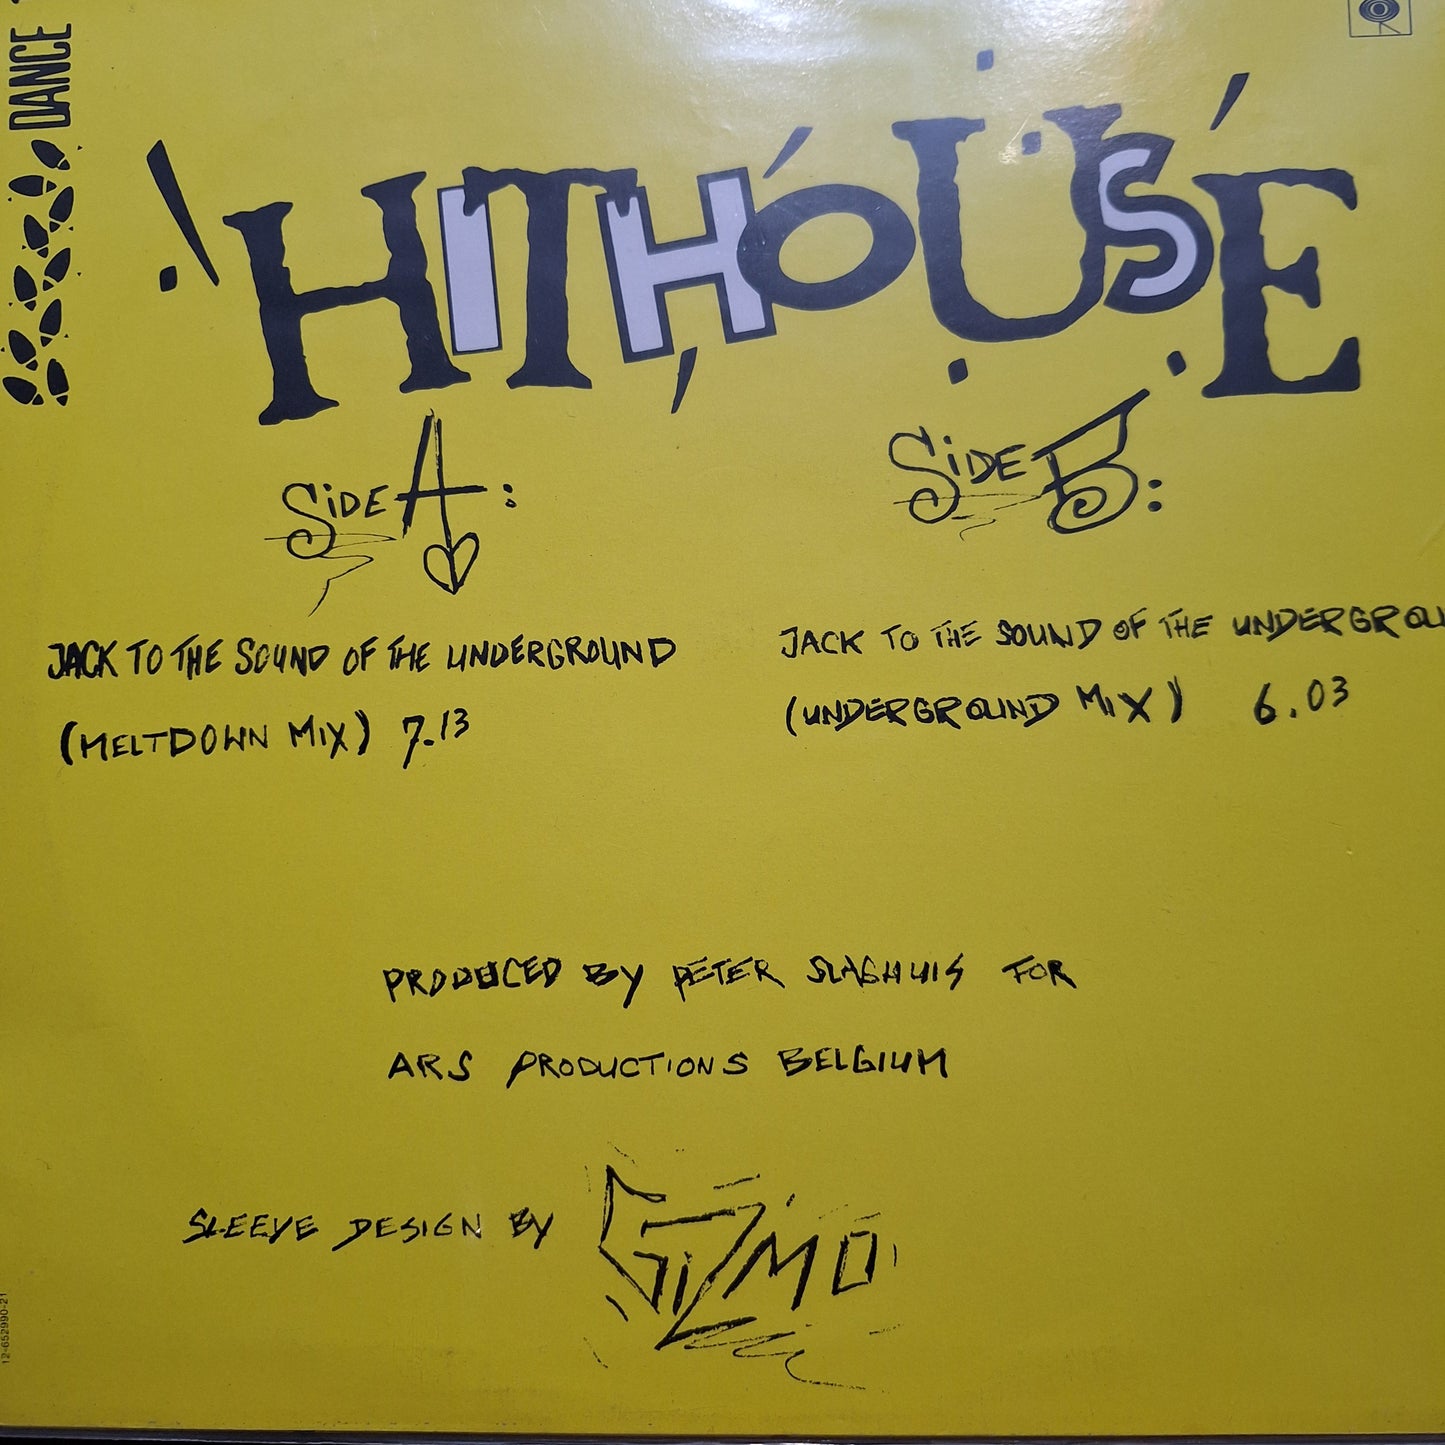 DANCE
HITHOUSE
SIDE A:
JACK TO THE SOUND OF THE UNDERGROUND
(MELTDOWN MIX) 7.13
SIDE B:
JACK TO THE SOUND OF THE UNDERGROU
(UNDERGROUND MIX) 6.03
PRODUCED BY PETER SLAGHUIS FOR
ARS PRODUCTIONS BELGIUM
SLEEVE DESIGN BY GIZMO
12-652990-21